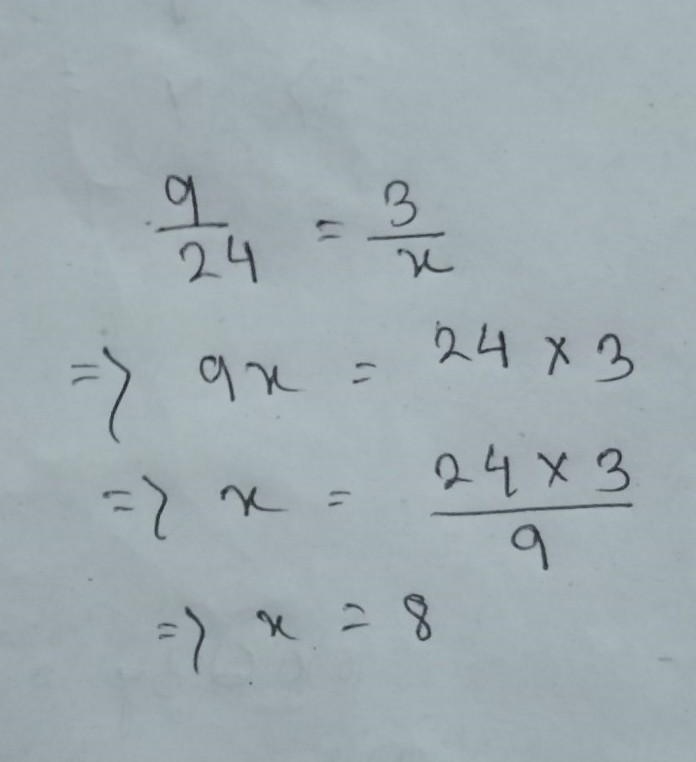 9/24 = 3/x
=> 9x = 24 × 3
=> x = (24 × 3)/9
=> x = 8